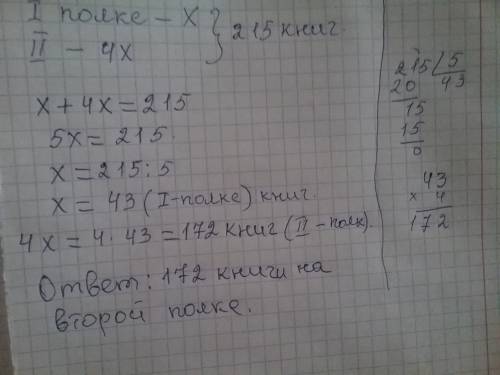 I полке – х } 215 книг.
II – 4х
х + 4х = 215
5х = 215.
х = 215 : 5
х = 43 (I-полке) книг.
4х = 4 · 43 = 172 книг (II – полк).
Ответ: 172 книги на
второй полке.
215 5
20 43
15
15
0
43
х 4
172